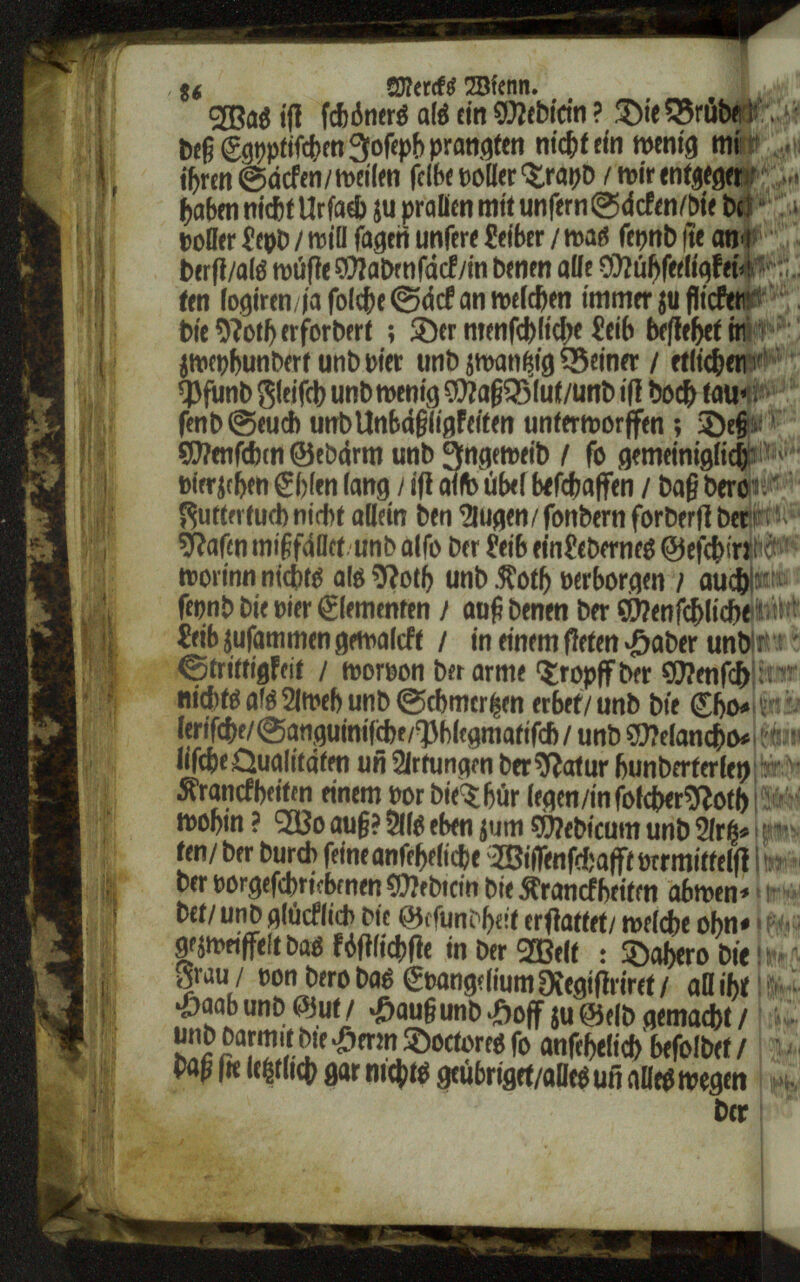 86 Mercks Wienn.
Was ist schöners als ein Medicin? Die Brüder
deß Egyptischen Joseph prangten nicht ein wenig mit
ihren Säcken/weilen selbe voller Trayd / wir entgegen
haben nicht Ursach zu prallen mit unsern Säcken/die
voller Leyd / will sagen unsere Leiber / was seynd sie
derst/als wüste Madensäck/in denen alle Mühseeligkei-
ten logiren/ja solche Säck an welchen immer zu flicken
die Noth erfordert ; Der menschliche Leib bestehet in
zweyhundert und vier und zwantzig Beiner / etlichen
Pfund Fleisch und wenig Maß Blut/und ist doch tau-
send Seuch und Unbäßligkeiten unterworffen ; Deß
Menschen Gedärm und Ingeweid / so gemeiniglich
vierzehen Ehlen lang / ist also übel beschaffen / daß dero
Futtertuch nicht allein den Augen/ sondern forderst der
Nasen mißfället und also der Leib ein Ledernes Geschirr
worinn nichts als Noth und Koth verborgen / auch
seynd die vier Elementen / auß denen der Menschliche
Leib zusammen gewalckt / in einem steten Hader und
Strittigkeit / worvon der arme Tropff der Mensch
nichts als Aweh und Schmertzen erbet/ und die Cho-
lerische/Sanguinische/Phlegmatisch / und Melancho-
lische Qualitäten uñ Artungen der Natur hunderterley
Kranckheiten einem vor die Thür legen/in solcher Noth
wohin ? Wo auß? Als eben zum Medicum und Artz-
ten/ der durch seine anseheliche Wissenschafft vermittelst
der vorgeschriebenen Medicin die Kranckheiten abwen-
det/ und glücklich die Gesundheit erstattet/ welche ohn-
gezweiffelt das köstlichste in der Welt : Dahero die
Frau / von dero das Evangelium Registriret / all ihr
Haab und Gut / Hauß und Hoff zu Geld gemacht /
und darmit die Herrn Doctores so ansehelich besoldet /
daß sie letztlich gar nichts geübriget/alles uñ alles wegen
der